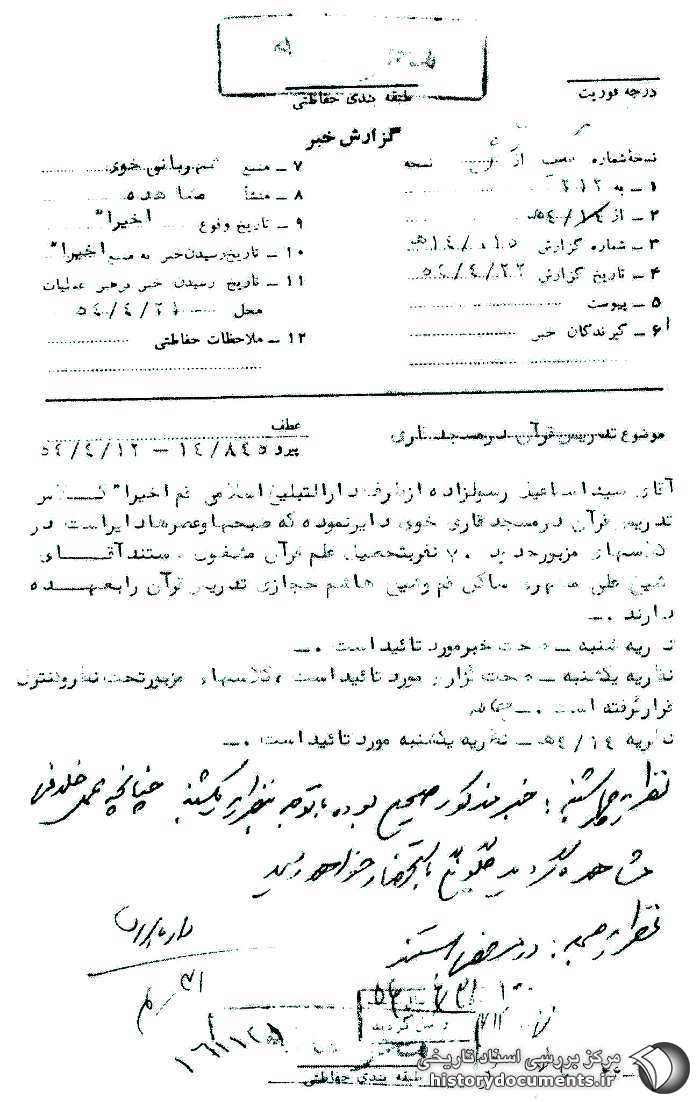 درجه فوریت
طبقه بندی حفاظتی
گزارش خبر
نسخهٔ شماره از نسخه
۱ ـ به ۳۱۲
۲ ـ از ۵۴/۱۴
۳ ـ شماره گزارش ۱۴/۰۱۵هـ
۴ ـ تاریخ گزارش ۵۴/۴/۲۲
۵ ـ پیوست
۶ ـ گیرندگان خبر
۷ ـ منبع خوی
۸ ـ منشأ مشاهده
۹ ـ تاریخ وقوع اخیرا"
۱۰ ـ تاریخ رسیدن خبر به منبع اخیرا"
۱۱ ـ تاریخ رسیدن خبر برهبر عملیات
محل ۵۴/۴/۲۱
۱۲ ـ ملاحظات حفاظتی
موضوع تدریس قرآن در مسجد قاری
عطف
پیرو ۱۴/۸۴۵ – ۵۴/۴/۱۲
آقای سید اسماعیل رسولزاده از طرف دارالتبلیغ اسلامی قم اخیرا" کلاس
تدریس قرآن در مسجد قاری خوی دایر نموده که صبحها و عصرها دایر است در
کلاسهای مزبور حدود ۷۰ نفر بتحصیل علم قرآن مشغول هستند آقای
شیخ علی ساکن قم و شیخ هاشم حجازی تدریس قرآن را بعهده
دارند .ـ
نظریه شنبه ـ صحت خبر مورد تائید است .ـ
نظریه یکشنبه ـ صحت گزارش مورد تائید است ، کلاسهای مزبور تحت نظر و کنترل
قرار گرفته است .ـ
نظریه ۱۴/۴هـ ـ نظریه یکشنبه مورد تائید است .ـ
نظریه چهارشنبه : خبر مذکور صحیح بوده با توجه بنظریه یکشنبه چنانچه عمل خلافی
مشاهده گردید باستحضار خواهد رسید
نظریه جمعه : در مرخصی هستند
۴/۳۱
طبقه بندی حفاظتی
مرکز بررسی اسناد تاریخی
historydocuments.ir